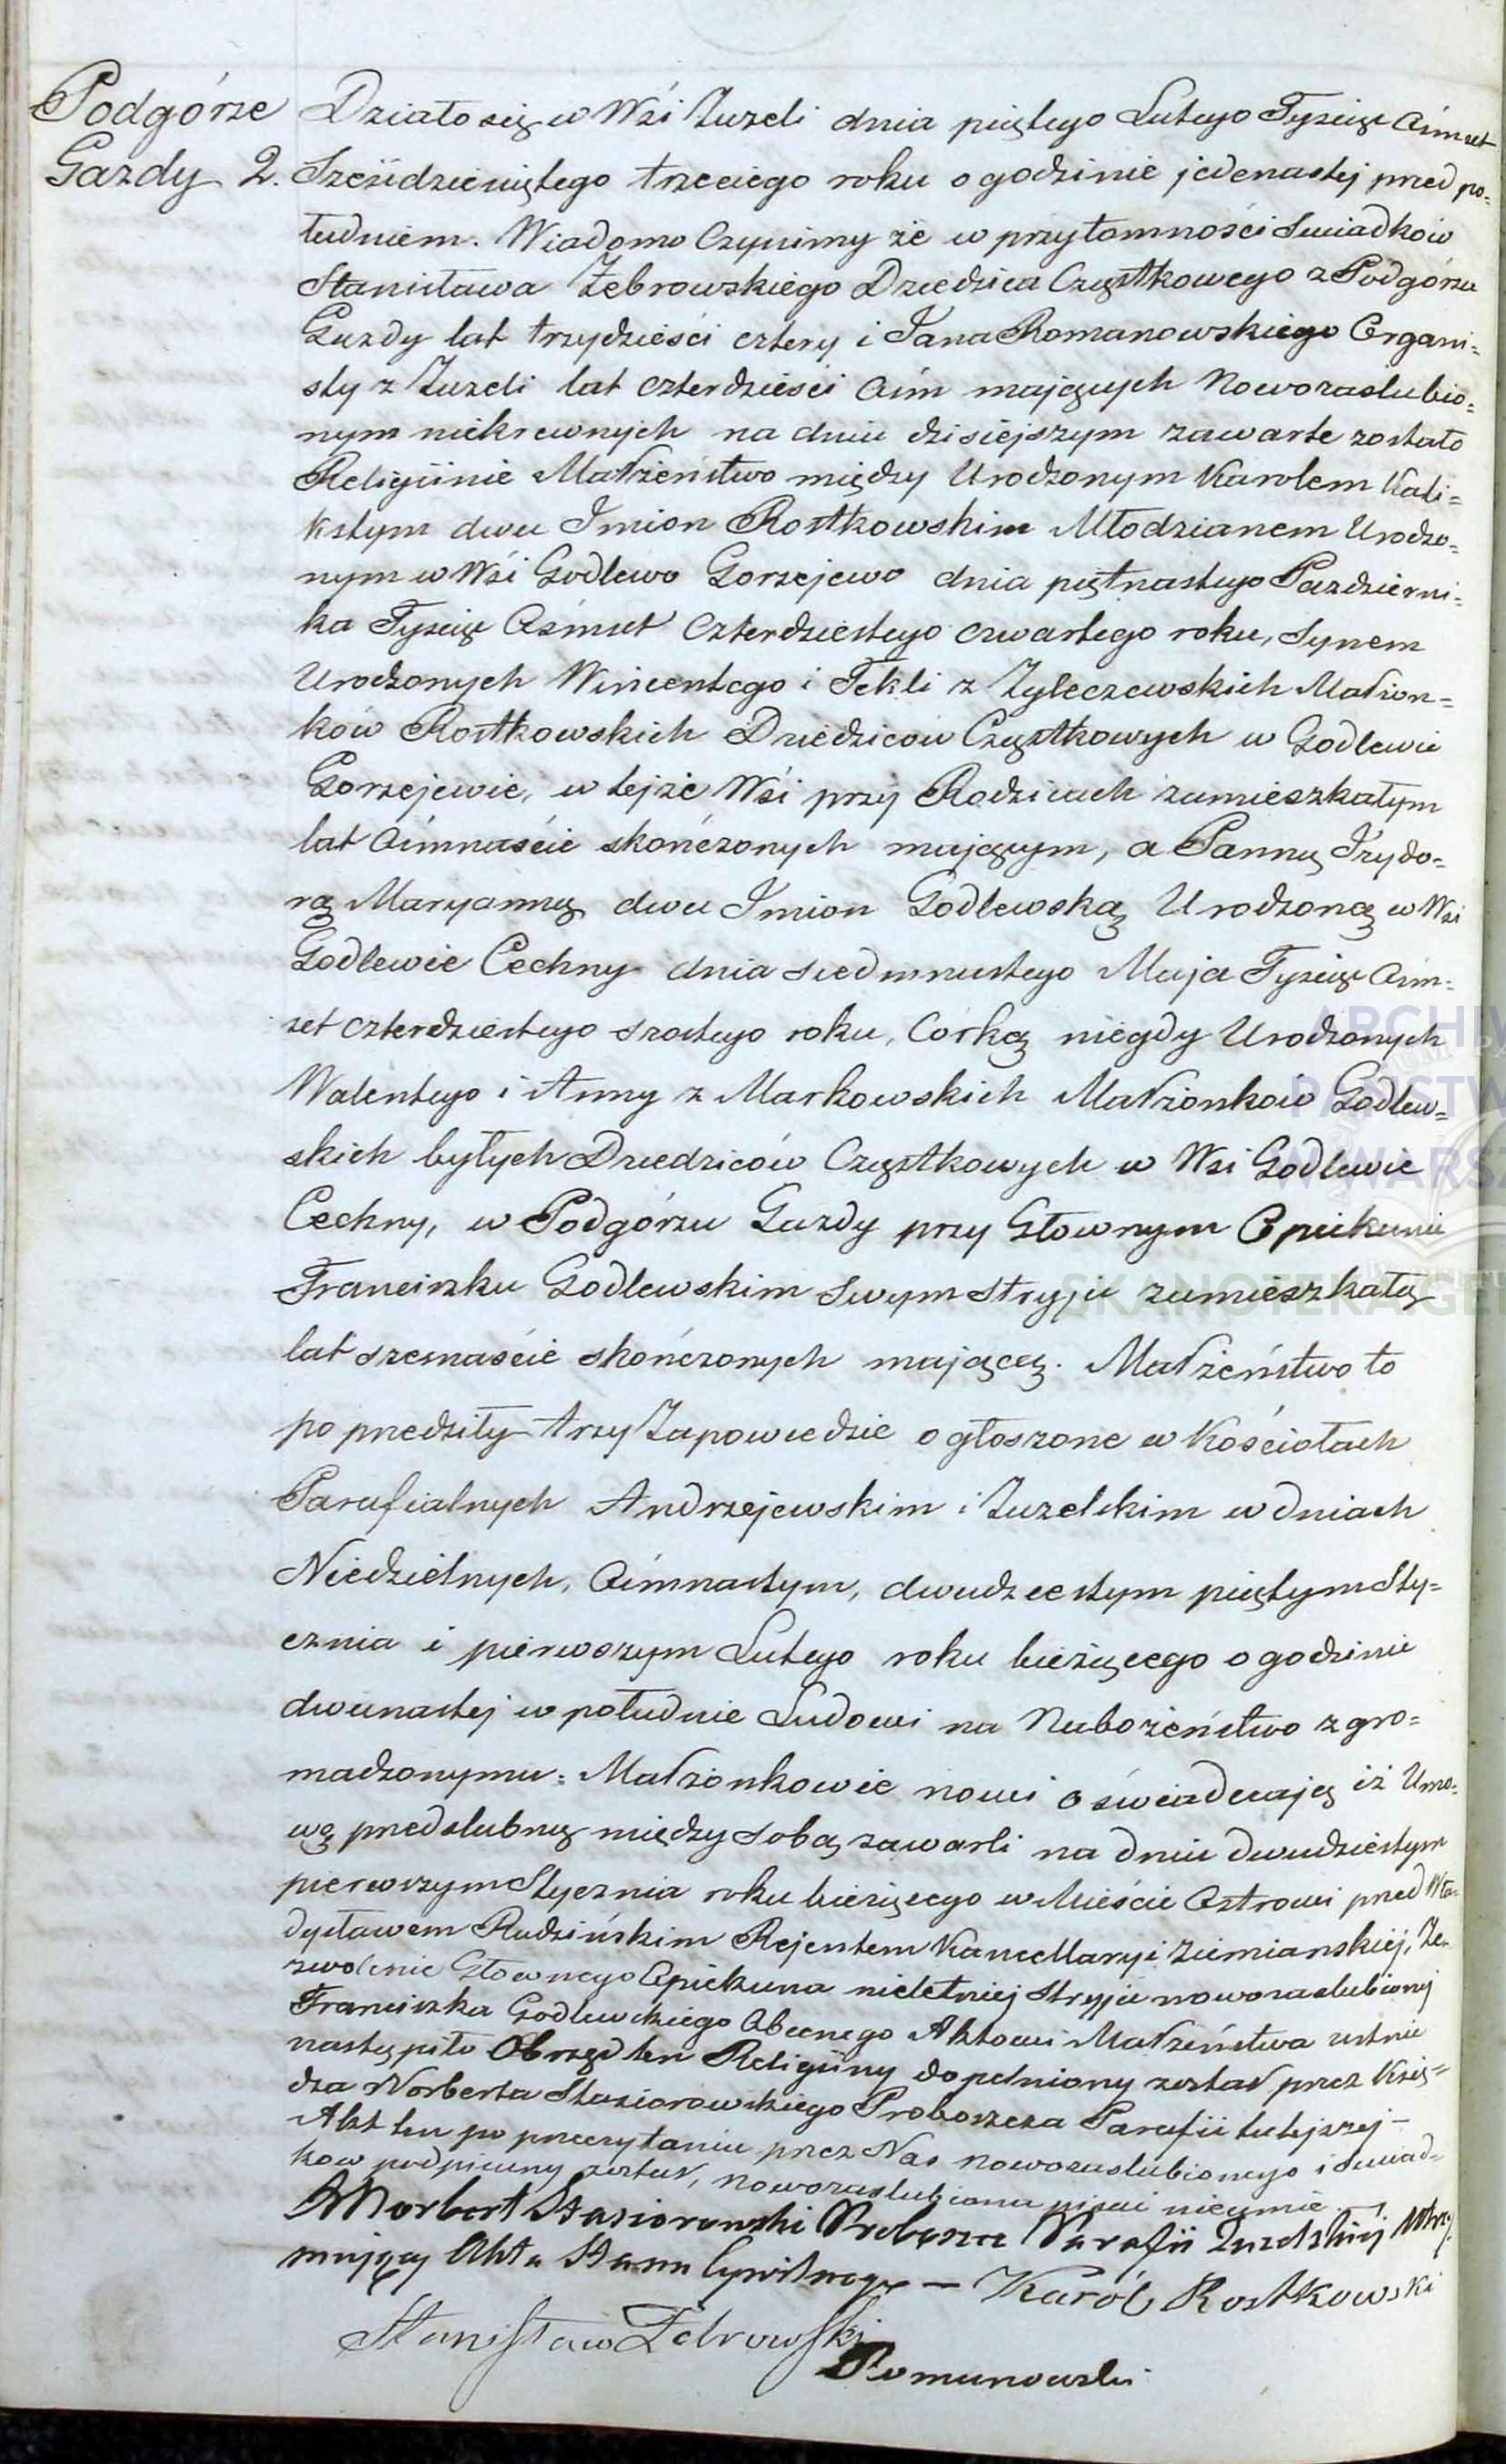 Podgórze
Gazdy 2.
Działo się w Wsi Zuzeli dnia piątego Lutego Tysiąc Ośmset
Sześćdziesiątego trzeciego roku o godzinie jedenastej przed po=
łudniem. Wiadomo Czynimy że w przytomności Swiadków
Stanisława Żebrowskiego Dziedzica Cząstkowego z Podgórza
Gazdy lat trzydzieści cztery i Jana Romanowskiego Organi=
sty z Zuzeli lat czterdzieści Ośm mających Nowozaslubio=
nym niekrewnych na dniu dzisiejszym zawarte zostało
Religijnie Małżeństwo między Urodzonym Karolem Kali=
kstym dwu Imion Rostkowskim Młodzianem Urodzo=
nym w Wsi Godlewo Gorzejewo dnia piętnastego Pazdzierni=
ka Tysiąc Ośmset Czterdziestego czwartego roku, Synem
Urodzonych Wincentego i Tekli z Zyleczewskich Małżon=
ków Rostkowskich Dziedziców Cząstkowych w Godlewie
Gorzejewie, w tejże Wsi przy Rodzicach zamieszkałym
lat Ośmnaście skończonych mającym, a Panną Izydo=
rą Maryanną dwu Imion Godlewską Urodzoną w Wsi
Godlewie Cechny dnia siedmnastego Maja Tysiąc Ośm=
set czterdziestego szostego roku, Córką niegdy Urodzonych
Walentego i Anny z Markowskich Małżonków Godlew=
skich byłych Dziedziców Cząstkowych w Wsi Godlewie
Cechny, w Podgórzu Gazdy przy Głownym Opiekunie
Franciszku Godlewskim Swym Stryju zamieszkałą
lat szesnaście skończonych mającą. Małżeństwo to
poprzedziły trzy Zapowiedzie ogłoszone w Kościołach
Parafialnych Andrzejewskim i Zuzelskim w dniach
Niedzielnych, Ośmnastym, dwudziestym piątym Sty=
cznia i pierwszym Lutego roku bieżącego o godzinie
dwunastej w południe Ludowi na Nabożeństwo zgro=
madzonymu. Małżonkowie nowi oświadczają iż Umo=
wę przedslubną między Sobą zawarli na dniu dwudziestym
pierwszym Stycznia roku bieżącego w Mieście Ostrowi przed Wła=
dysławem Rudzińskim Rejentem Kancellaryi Ziemianskiej, Ze=
zwolenie Głownego Opiekuna nieletniej Stryja nowozaslubionej
Franciszka Godlewskiego Obecnego Aktowi Małżeństwa ustnie
nastąpiło Obrzęd ten Religijny dopełniony został przez Księ=
dza Norberta Staziorowskiego Proboszcza Parafii tutejszej –
Akt ten po przeczytaniu przez Nas nowozaslubionego i Swiad=
ków podpisany został, nowozaslubiona pisać nieumie.
Norbert Staziorowski Proboszcz Parafii Zuzelskiej Utrzy
mujący Akta Stanu Cywilnego – Karól Rostkowski
Stanisław Zebrowski
Romanowski